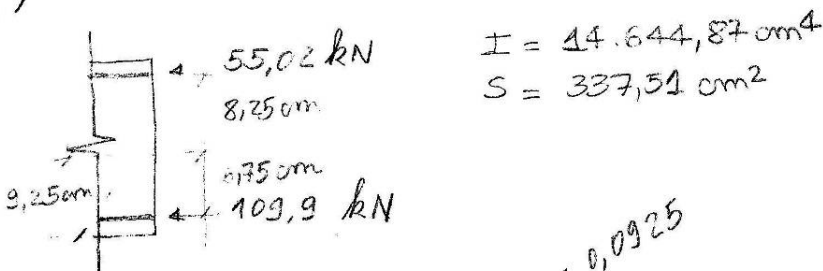 55,02 kN
8,25 cm
6,75 cm
9,25 cm
109,9 kN
I = 14.644,87 cm⁴
S = 337,51 cm²
0,0925